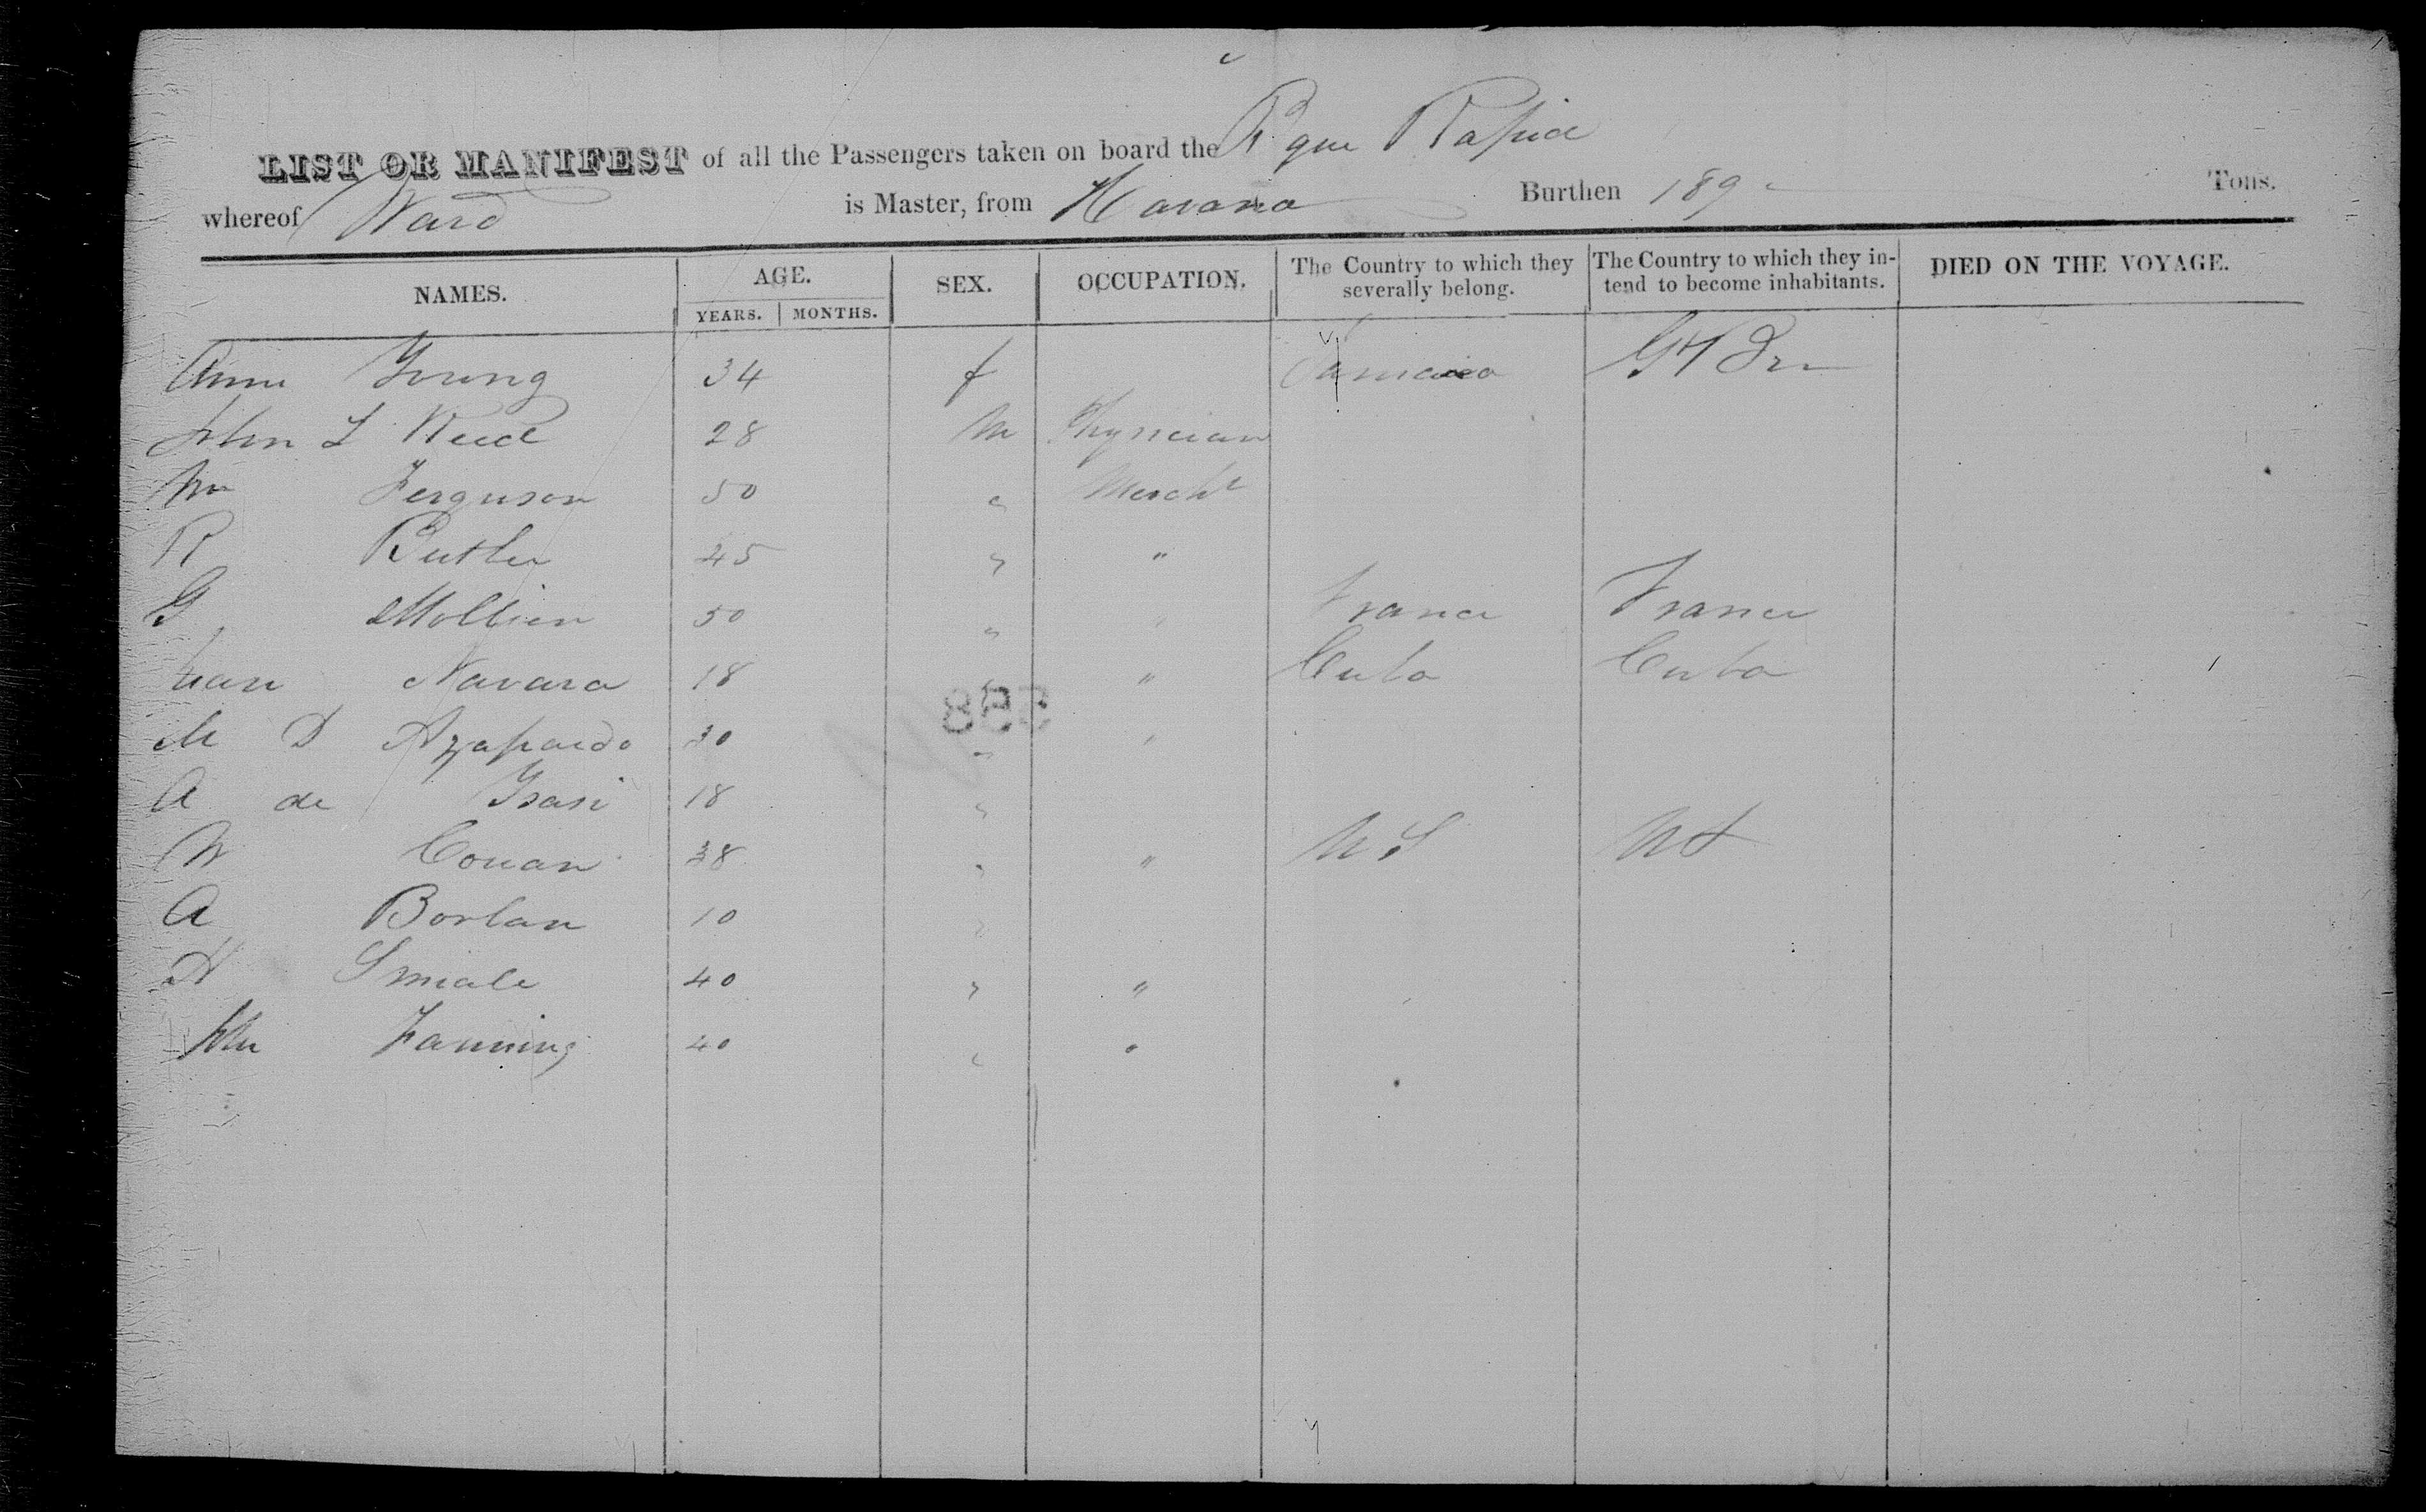 LIST OR MANIFEST of all the Passengers taken on board the Bque Rapid
whereof Ward is Master, from Havana Burthen 189 Tons.
NAMES. AGE. YEARS. MONTHS. SEX. OCCUPATION. The Country to which they severally belong. The Country to which they intend to become inhabitants. DIED ON THE VOYAGE.
Anne Young 34 f Jamaica Gt Brn
John L Reid 28 M Physician
Wm Ferguson 50 " Mercht
R Butler 45 " "
G Mollien 50 " " France France
Juan Navara 18 " " Cuba Cuba
M D Azapardo 30 " "
A de Ysasi 18 "
W Couan 38 " " U S U S
A Borlan 10 "
H 40 " "
John Fanning 40 " "